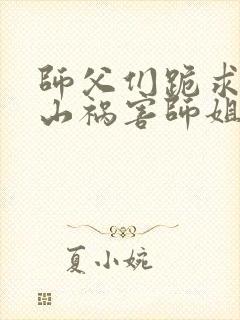 師父们跪求
山祸害師姐
夏小婉